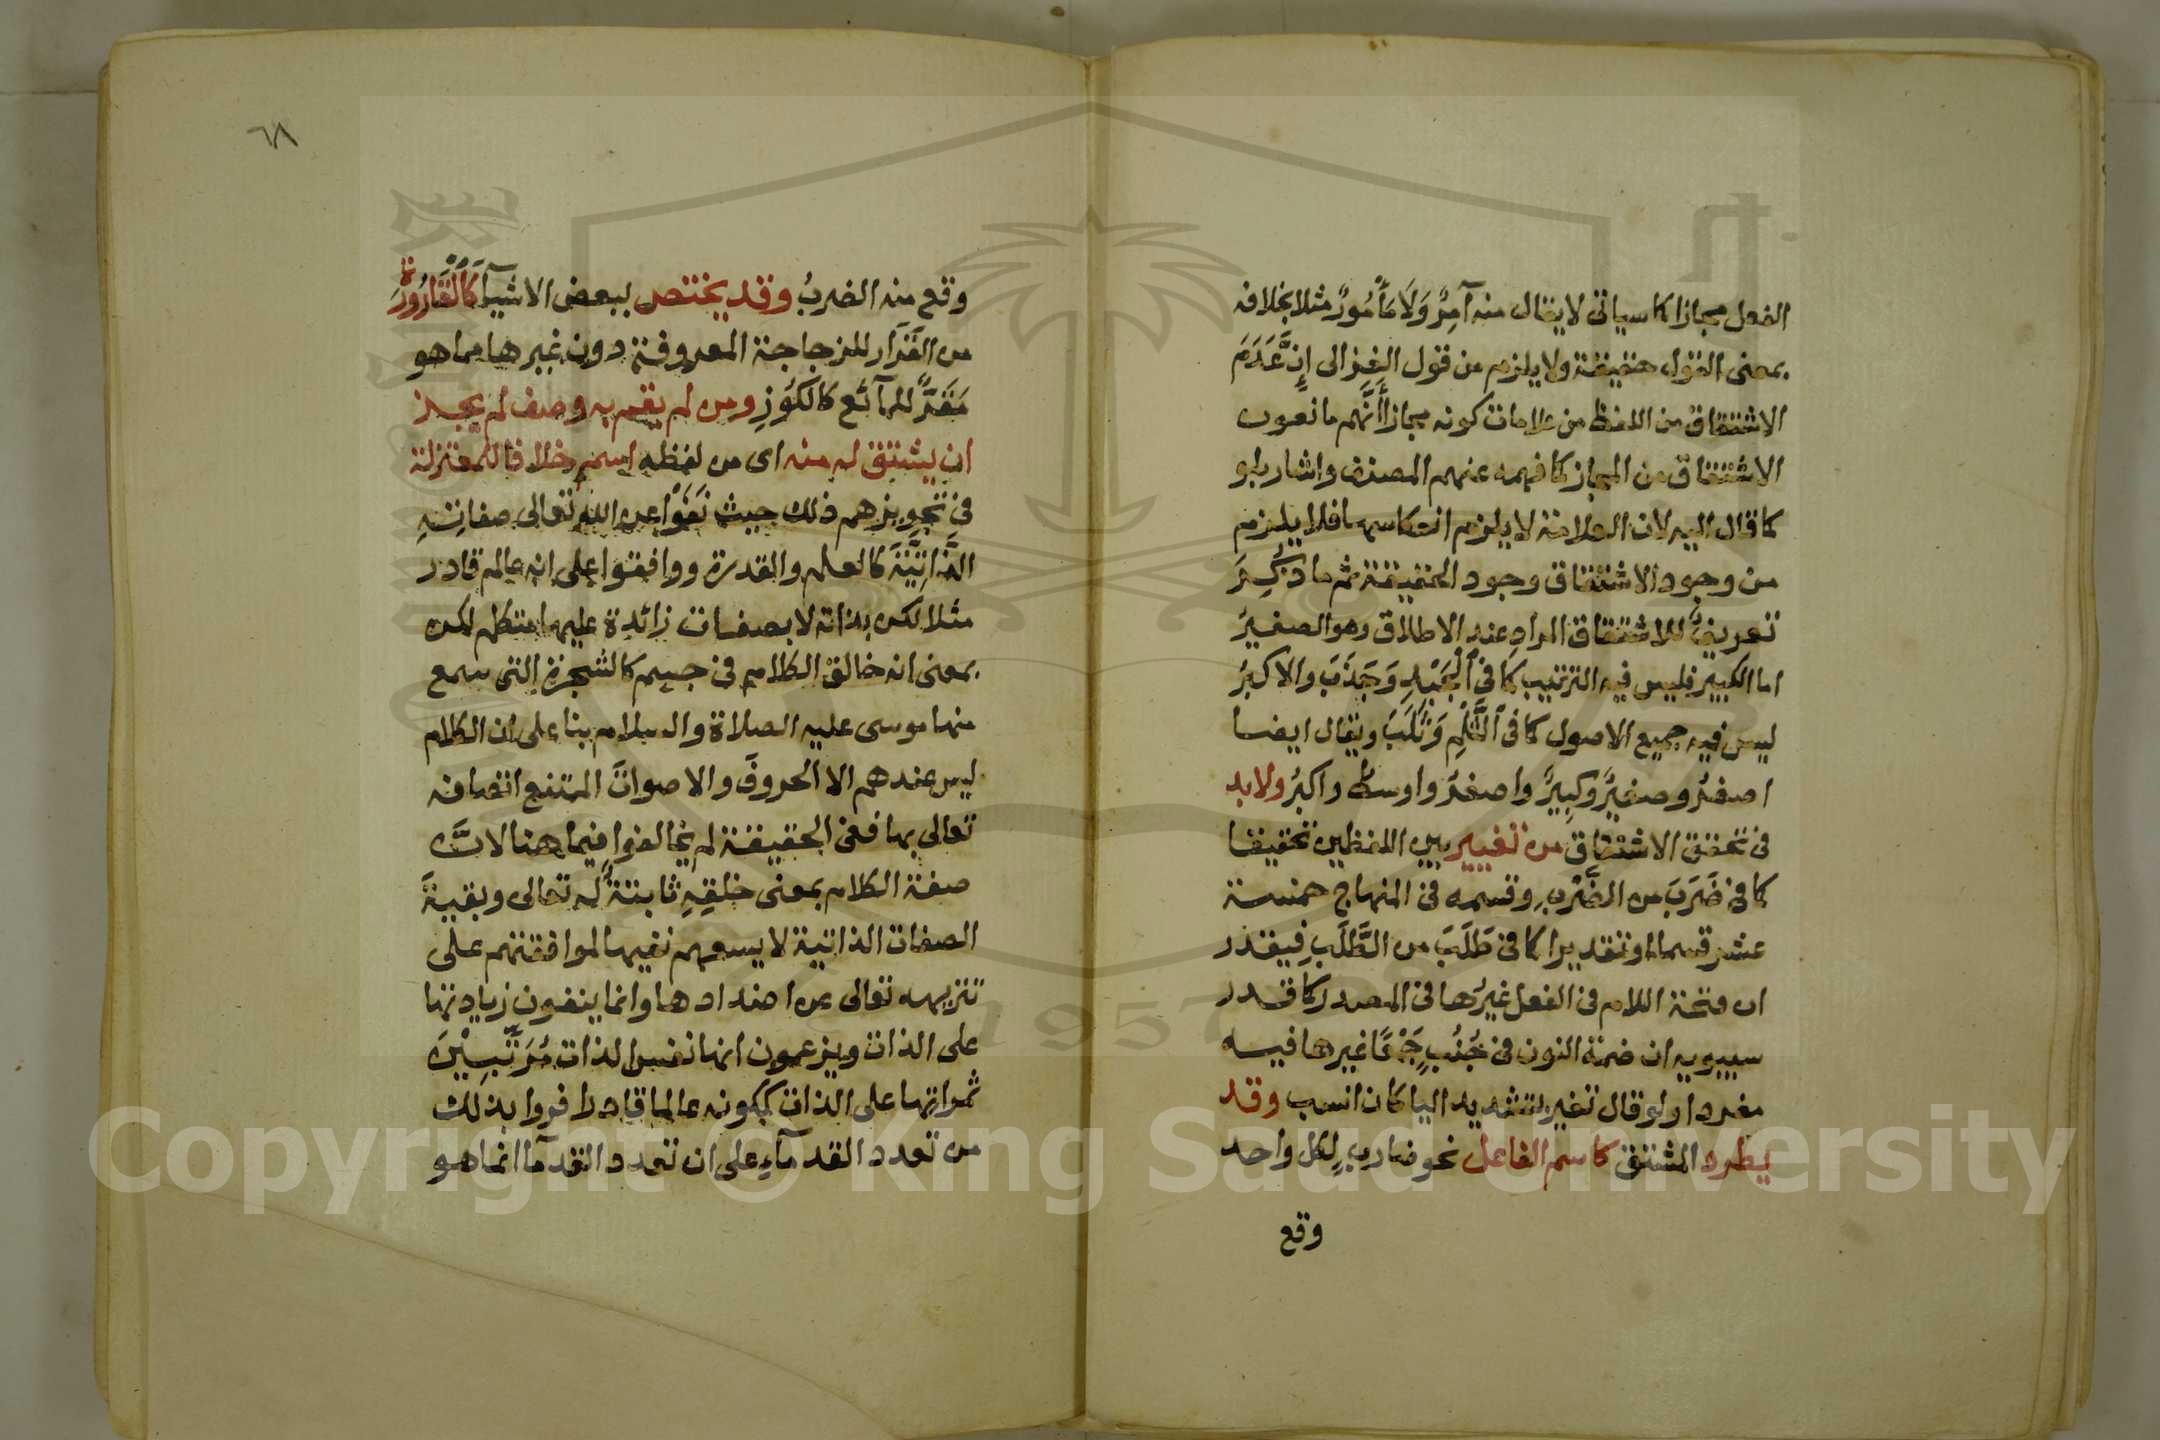 الفعل مجازا كما سياتى لا يقال منه آمِرٌ وَلَا مَأْمُورٌ مثلا بخلافه
بمعنى القول حقيقة ولا يلزم من قول الغزالى إِنَّ عَدَمَ
الاشتقاق من اللفظ من علامات كونه مجازا أَنَّهم مانعون
الاشتقاق من المجاز كما فهمه عنهم المصنف واشار بلو
كما قال اليه لان العلامة لا يلزم انعكاسها فلا يلزم
من وجود الاشتقاق وجود الحقيقة ثم ما ذُكِرَ
تعريفٌ للاشتقاق المراد عند الاطلاق وهو الصغير
اما الكبير فليس فيه الترتيب كما فى ٱلْجَبْذِ وَجَذَبَ والاكبرُ
ليس فيه جميع الاصول كما فى ٱلثَّلْمِ وَثَلَبَ ويقال ايضا
اصغرُ وصغيرٌ وكبيرٌ واصغرُ واوسطُ واكبرُ ولا بد
فى تحقق الاشتقاق من تغيير بين اللفظين تحقيقا
كما فى ضَرَبَ من الضَّرْبِ وقسمه فى المنهاج خمسة
عشر قسما او تقديرا كما فى طَلَبَ من الطَّلَبِ فيقدر
ان فتحة اللام فى الفعل غيرُها فى المصدر كما قدر
سيبويه ان ضمة النون فى جُنُبٍ جَمْعًا غيرها فيه
مفردا ولو قال تغير بتشديد اليا كان انسب وقد
يطرد المشتق كاسم الفاعل نحو ضارب لِكل واحد
وقع
٦٨
وقع منه الضربُ وقد يختص ببعض الاشيآ كَٱلْقَارُورَةِ
من القَرَار للزجاجة المعروفة دون غيرها مما هو
مَقَرٌّ للمآئع كالكُوزِ ومن لم يقم به وصف لم يجز
ان يشتق له منه اى من لفظه اسم خلافا للمعتزلة
فى تجويزهم ذلك حيث نَفَوْا عن الله تعالى صفاتِهِ
الذَّاتِيَّةَ كالعلم والقدرة ووافقوا على انه عالم قادر
مثلا لكن بذاته لا بصفات زائدة عليها متكلم لكن
بمعنى انه خالق الكلام فى جسم كالشجرة التى سمع
منها موسى عليه الصلاة والسلام بنا على ان الكلام
ليس عندهم الا الحروفَ والاصواتَ الممتنع اتصافه
تعالى بها ففى الحقيقة لم يخالفوا فيما هنا لانَّ
صفة الكلام بمعنى خلقِهِ ثابتةٌ له تعالى وبقيةَ
الصفات الذاتية لا يسعهم نفيها لموافقتهم على
تنزيهه تعالى عن اضدادها وانما ينفون زيادتها
على الذات ويزعمون انها نفس الذات مُرَتِّبِيْنَ
ثمراتها على الذات ككونه عالما قادرا فروا بذلك
من تعدد القدمآءِ على ان تعدد القدمآ انما هو